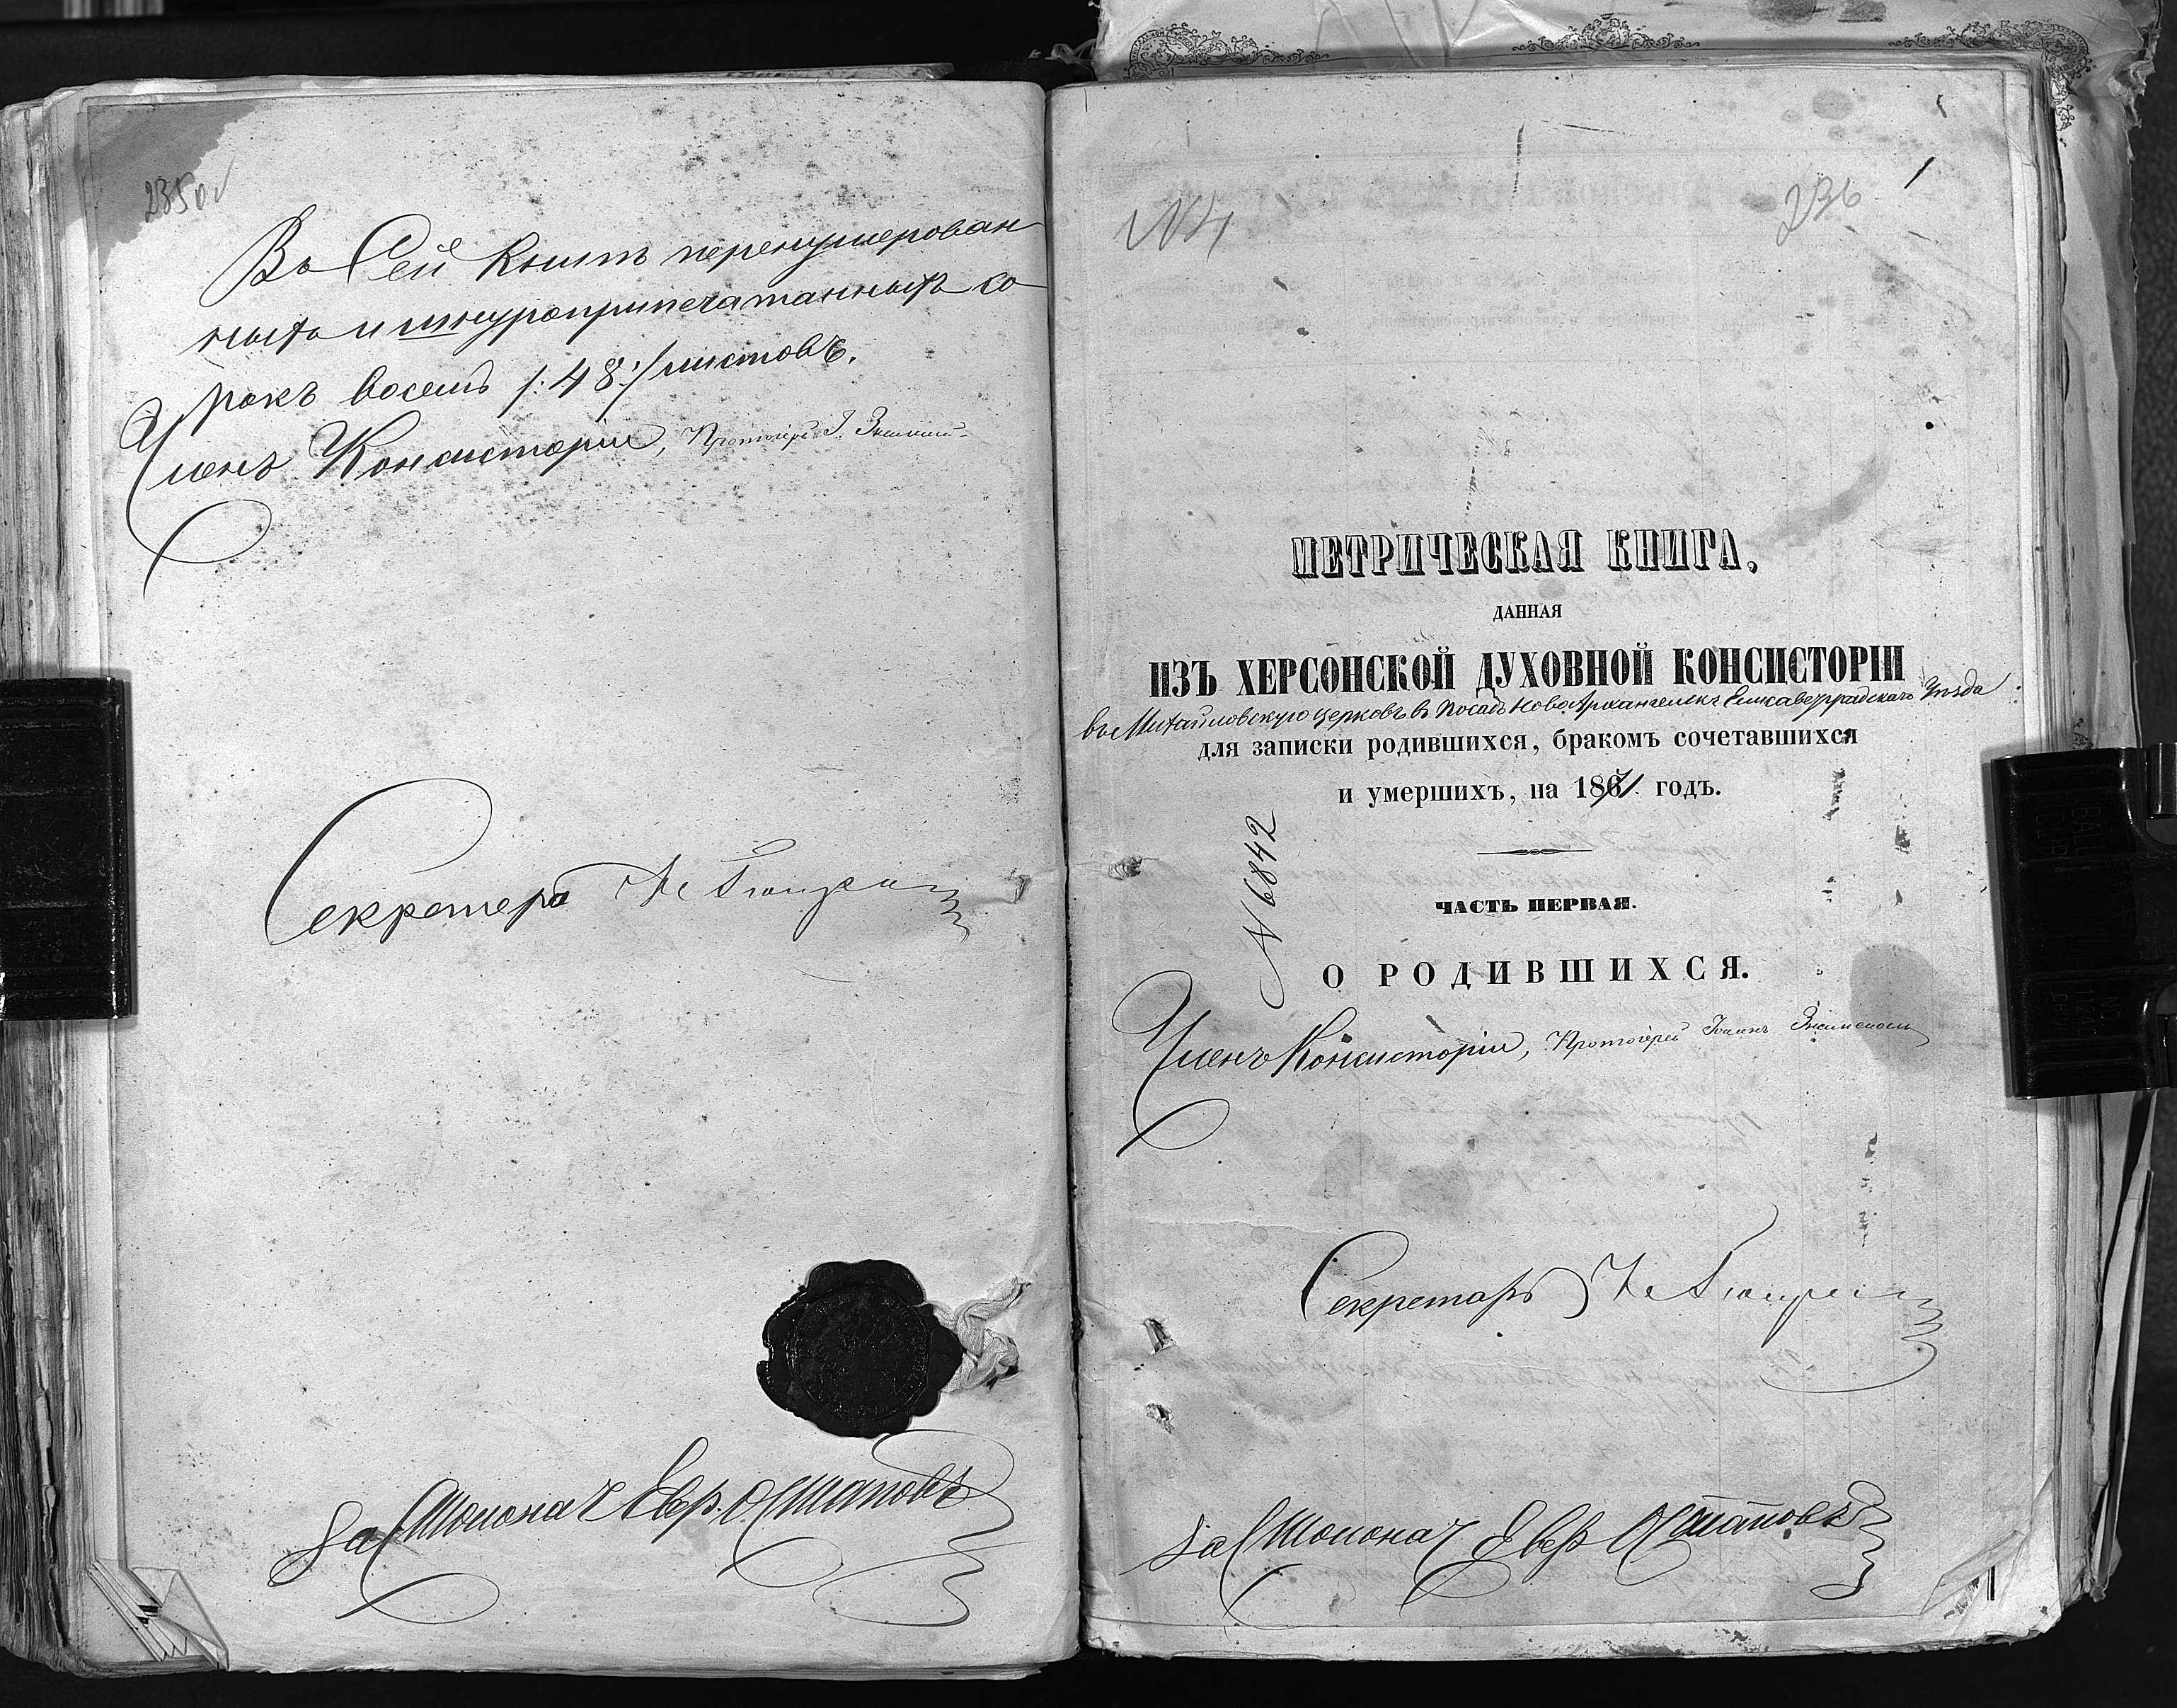 235об
Въ Сей Книгѣ перенумерован
ныхъ и шнуроприпечатанныхъ со
рокъ восемь /:48:/ листовъ.
Членъ Консисторіи, Протоіерей І.
Секретарь
За Столонач. Евер. Остаповъ
1
236
N 4
МЕТРИЧЕСКАЯ КНИГА,
ДАННАЯ
ИЗЪ ХЕРСОНСКОЙ ДУХОВНОЙ КОНСИСТОРІИ
въ Михайловскую церковь въ Посадъ НовоАрхангельскъ Елисаветградскаго Уѣзда
для записки родившихся, бракомъ сочетавшихся
и умершихъ, на 1871 годъ.
N 6842
ЧАСТЬ ПЕРВАЯ.
О РОДИВШИХСЯ.
Членъ Консисторіи, Протоіерей Іоаннъ
Секретарь
За Столонач Евер Остаповъ